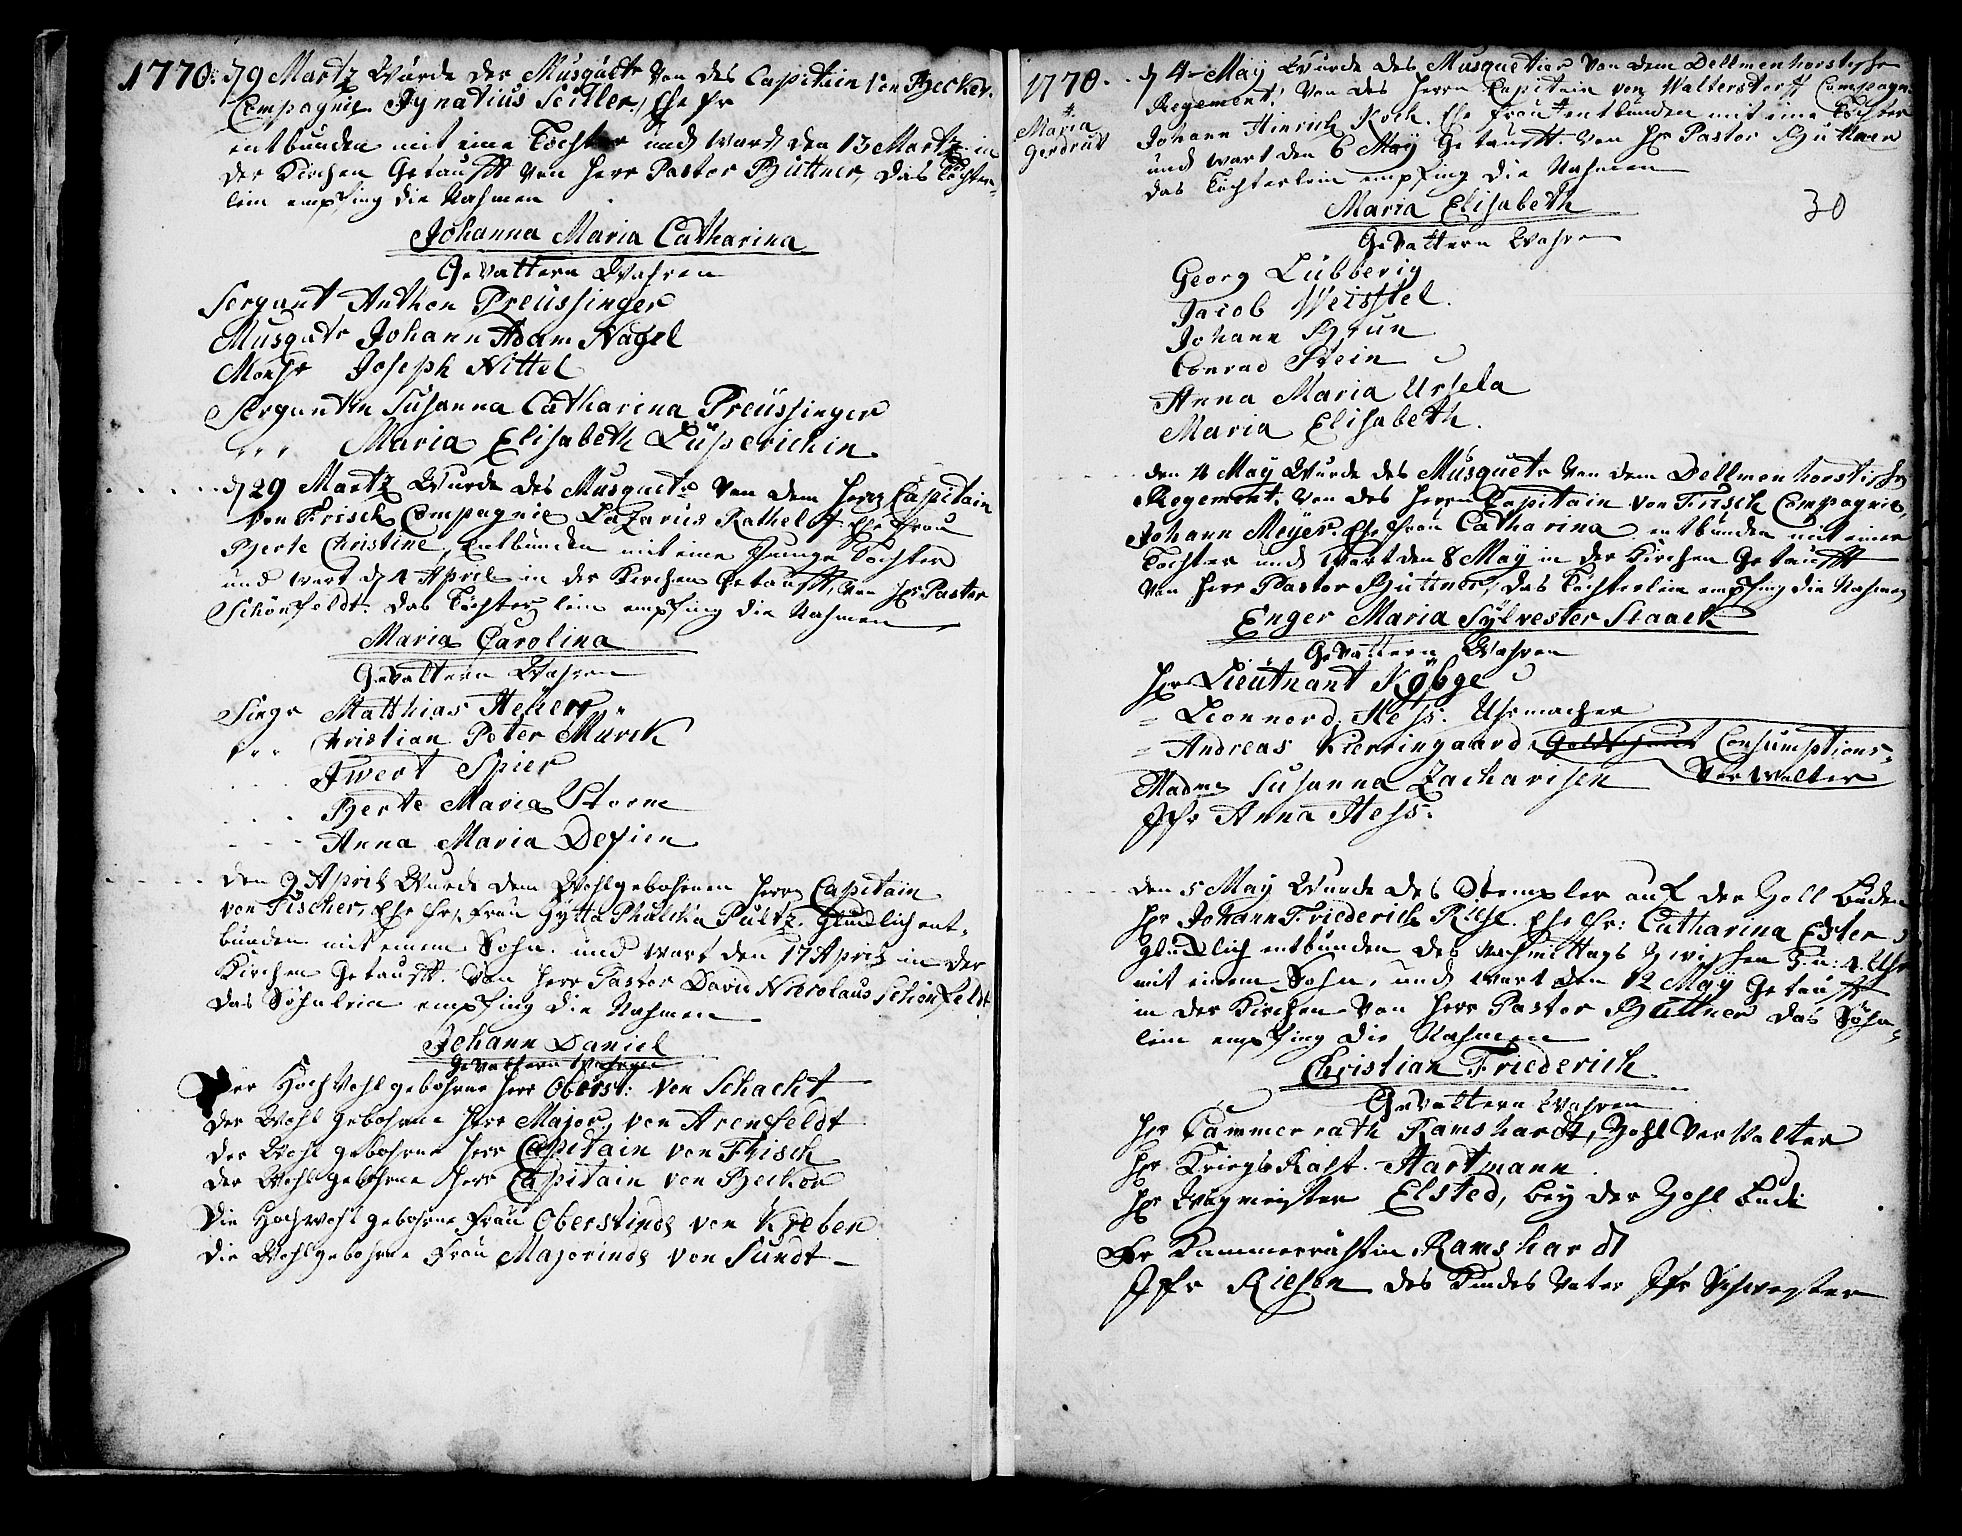 1770. d 9 Martz Wurde der Musquete von des Capitain von Becker.
Compagnie Ignatius Seitler, Ehe fr
entbunden mit eine Tochter und ward den 13 Martz in
der Kirchen Getaufft von Herr Pastor Büttner, das Töchter-
lein empfing die Nahmen
Johanna Maria Catharina
Gevattern Wahren
Sergant Anthon Preüssinger
Musqute Johann Adam Nagel
Monsr Joseph Nittel
Sergantin Susanna Catharina Preüssinger
Maria Elisabeth Lüperichin
d 29 Martz Wurde des Musquete von dem Herrn Capitain
von Frisch Compagnie Lazarus Rathel Ehe Frau
Berte Christine, Entbunden mit eine Junge Tochter
und wart d 4 April in der Kirchen Getaufft, von Hr Pastor
Schönfeldt. Das Töchterlein empfing die Nahmen
Maria Carolina
Gevattern Wahren
Matthias Heüer
Christian Peter Murck
Iwert Spier
Berte Maria Storm
Anna Maria Desien
den 9 April Wurde dem Wohlgebohrnen Herrn Capitain
von Fischer, Ehe fr, Frau Gytta Pultz. Glücklich ent-
bunden mit einem Sohn und wart den 17 April in der
Kirchen Getaufft. Von Herr Pastor David Nicolaus Schönfeldt
das Söhnlein empfing die Nahmen
Johann Daniel
Gevattern Wahren
Der HochWohlgebohrne Herr Oberst: von Schacht
der Wohl gebohrne Herr Major, von Arenfeldt
der Wohl gebohrne Herr Capitain von Frisch
der Wohlgebohrne Herr Capitain von Becker
Die Hochwohlgebohrne Frau Oberstinde von Kreber
die Wohlgebohrne Frau Majorinde von Sundt
1770. d 4 May Wurde des Musquetier von dem Dellmenhorstische
Maria
Gerdrut
Regement, von des Herrn Capitain von Walterstorff Compagn
Johann Hinrich Koch. Ehe Frau entbunden mit eine Tochter
und wart den 6 May Getaufft. von Hr Pastor Büttner
das Töchterlein empfing die Nahmen
Maria Elisabeth
30
Gevattern Wahren
Georg Lübberig
Jacob Weisstel.
Johann Brun
Conrad Stein
Anna Maria Ursela
Maria Elisabeth.
den 4 May Wurde des Musquete von dem Dellmenhorstische
Regement, von des Herrn Capitain von Frisch Compagnie,
Johann Meyer. Ehe Frau Catharina entbunden mit einer
Tochter und wart den 8 May in der Kirchen Getaufft
von Herr Pastor Büttner, das Töchterlein empfing die Nahmen
Enger Maria Sylvester Staack
Gevattern Wahren
Hr Lieutnant Købge
Leonnord Hess. Uhrmacher
Andreas Kierringaard, Goldschmit Consumptions-
Verwalter
Madme Susanna Zacharisen
Jfr Anna Hess.
den 5 May Wurde des Stempler auf der Zoll Buden
Hr Johann Friederich Riese. Ehe fr: Catharina Ester
Glücklich entbunden des Nachmittags Zwischen 3 u: 4 Uhr
mit einem Sohn, und wart den 12 May Getaufft
in der Kirchen von Herr Pastor Büttner das Söhn-
lein empfing die Nahmen
Christian Friederich
Gevattern Wahren
Hr Cammerrath Ramshardt, Zohl Verwalter
Hr Kriegs Raht. Hartmann
Hr Wegmeister Elsted, bey der Zohl Bude
Fr Kammerräthin Ramshardt
Jfr Riesen des Kindes Vater Jfr Schwester